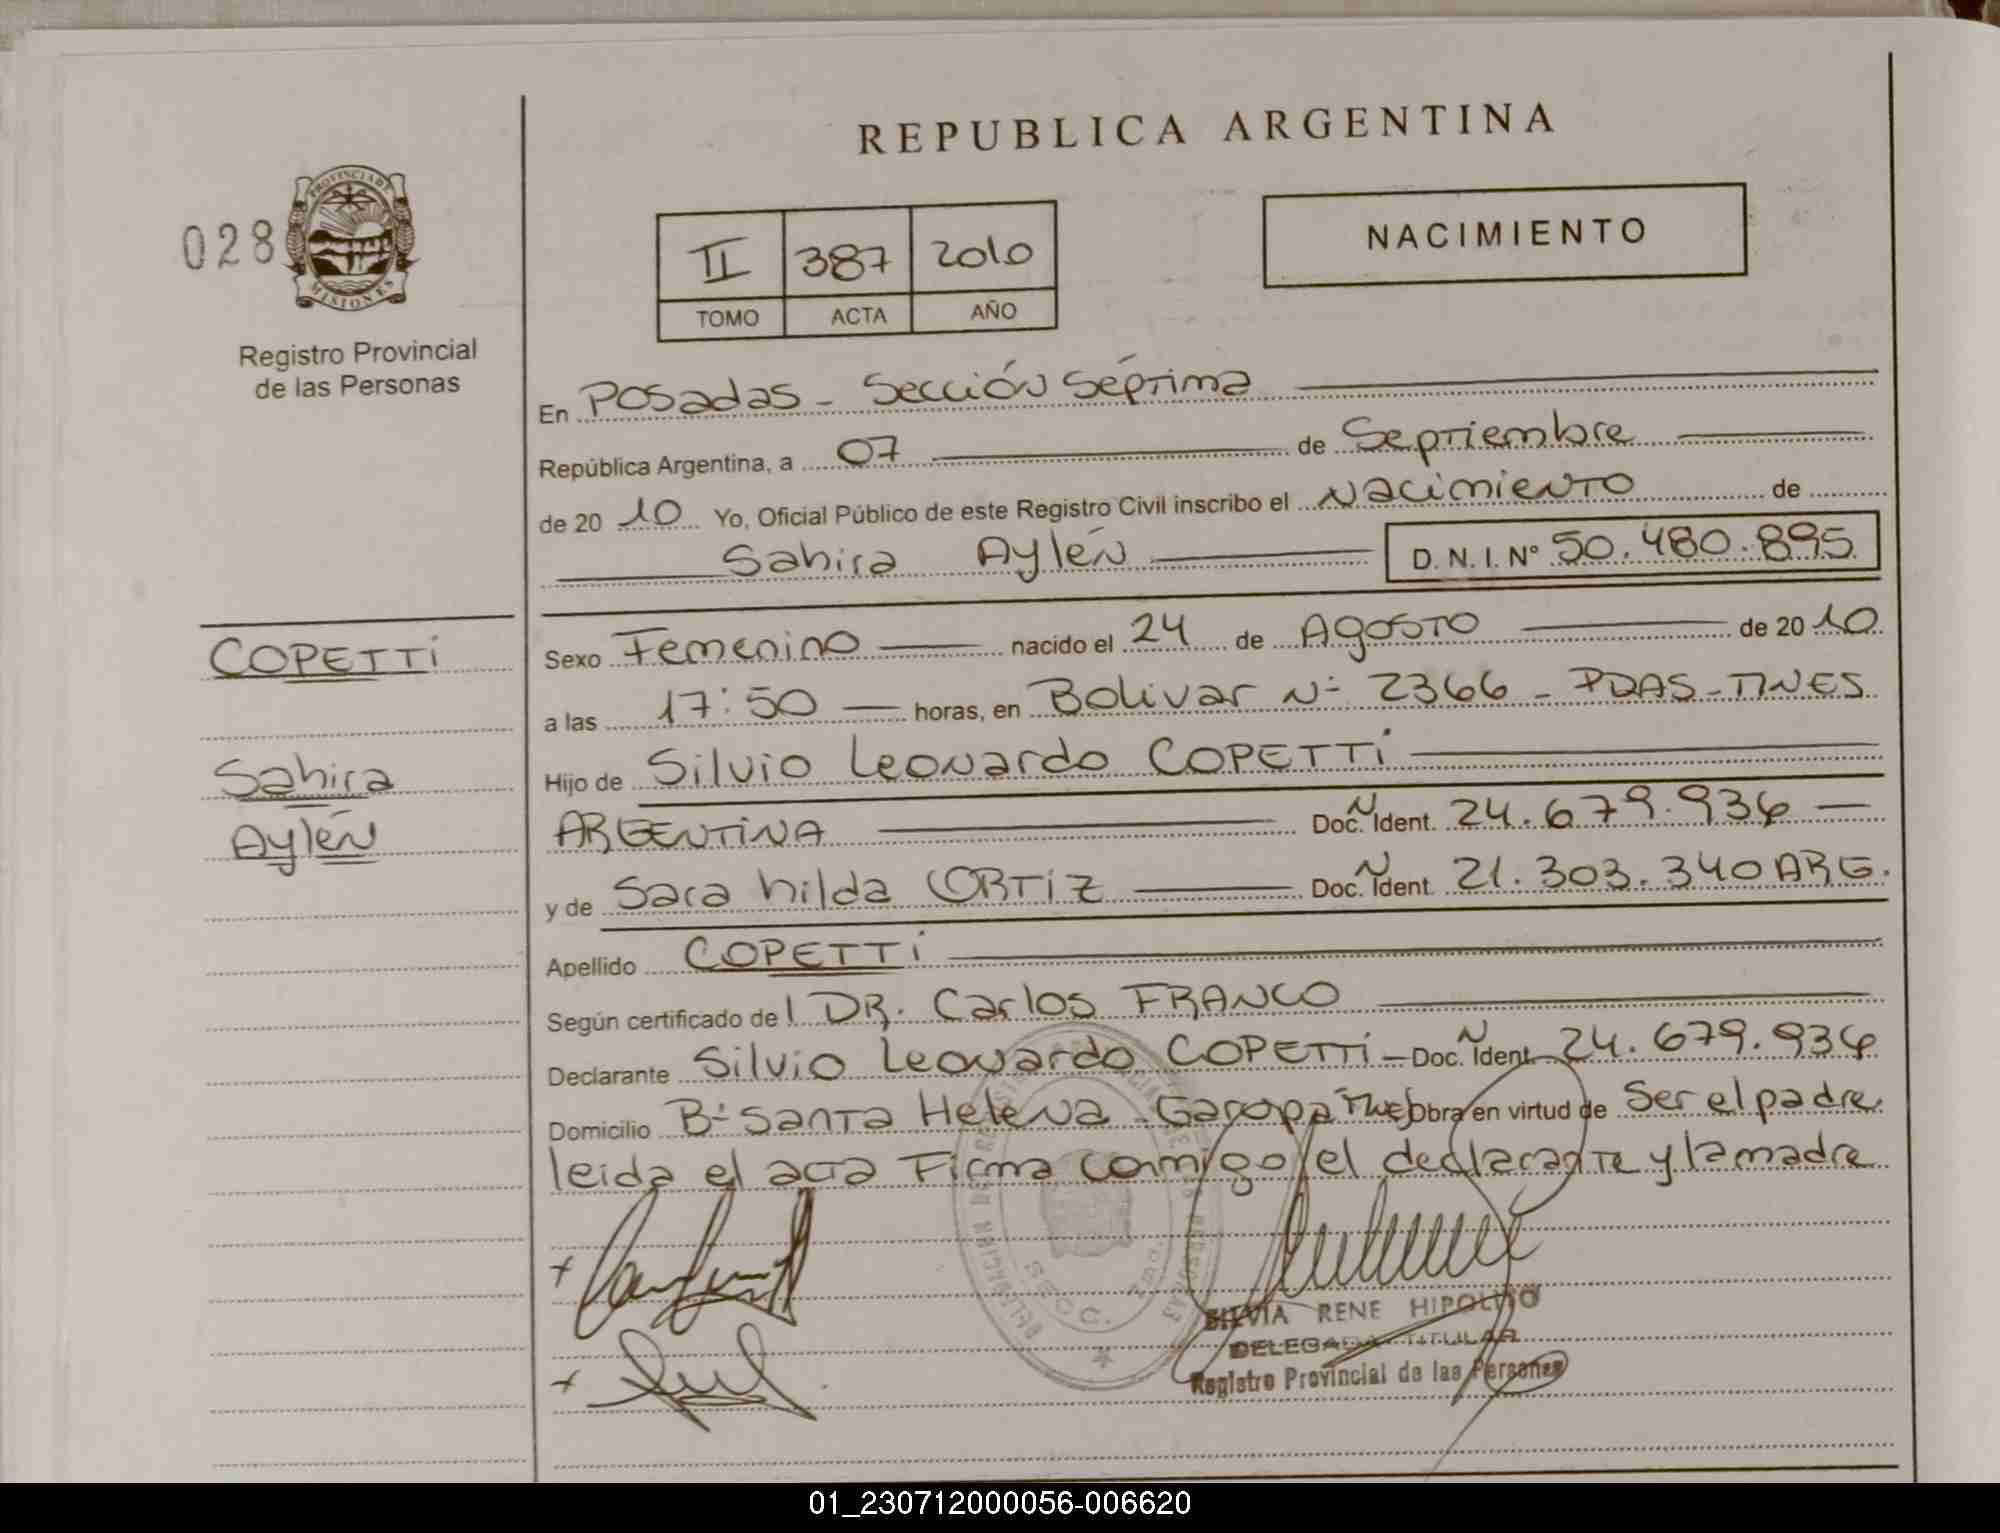 REPUBLICA ARGENTINA
028
PROVINCIA DE MISIONES
Registro Provincial
de las Personas
II 387 2010
TOMO ACTA AÑO
NACIMIENTO
En Posadas - Sección Séptima
República Argentina, a 07 de Septiembre
de 20 10 Yo, Oficial Público de este Registro Civil inscribo el Nacimiento de
Sahira Aylén D.N.I. Nº 50.480.895
COPETTi
Sahira
Aylén
Sexo Femenino nacido el 24 de Agosto de 20 10
a las 17:50 horas, en Bolivar Nº 2366 - PDAS - MNES
Hijo de Silvio Leonardo COPETTi
ARGENTINA Doc. Ñ Ident. 24.679.936
y de Sara hilda ORTIZ Doc. Ñ Ident. 21.303.340 ARG.
Apellido COPETTi
Según certificado del DR. Carlos FRANCO
Declarante Silvio Leonardo COPETTi - Doc. Ñ Ident. 24.679.936
Domicilio Bº Santa Helena - Garopa Obra en virtud de Ser el padre
leida el acta Firma conmigo el declarante y la madre
SILVIA RENE HIPOLITO
DELEGADA TITULAR
Registro Provincial de las Personas
01_230712000056-006620